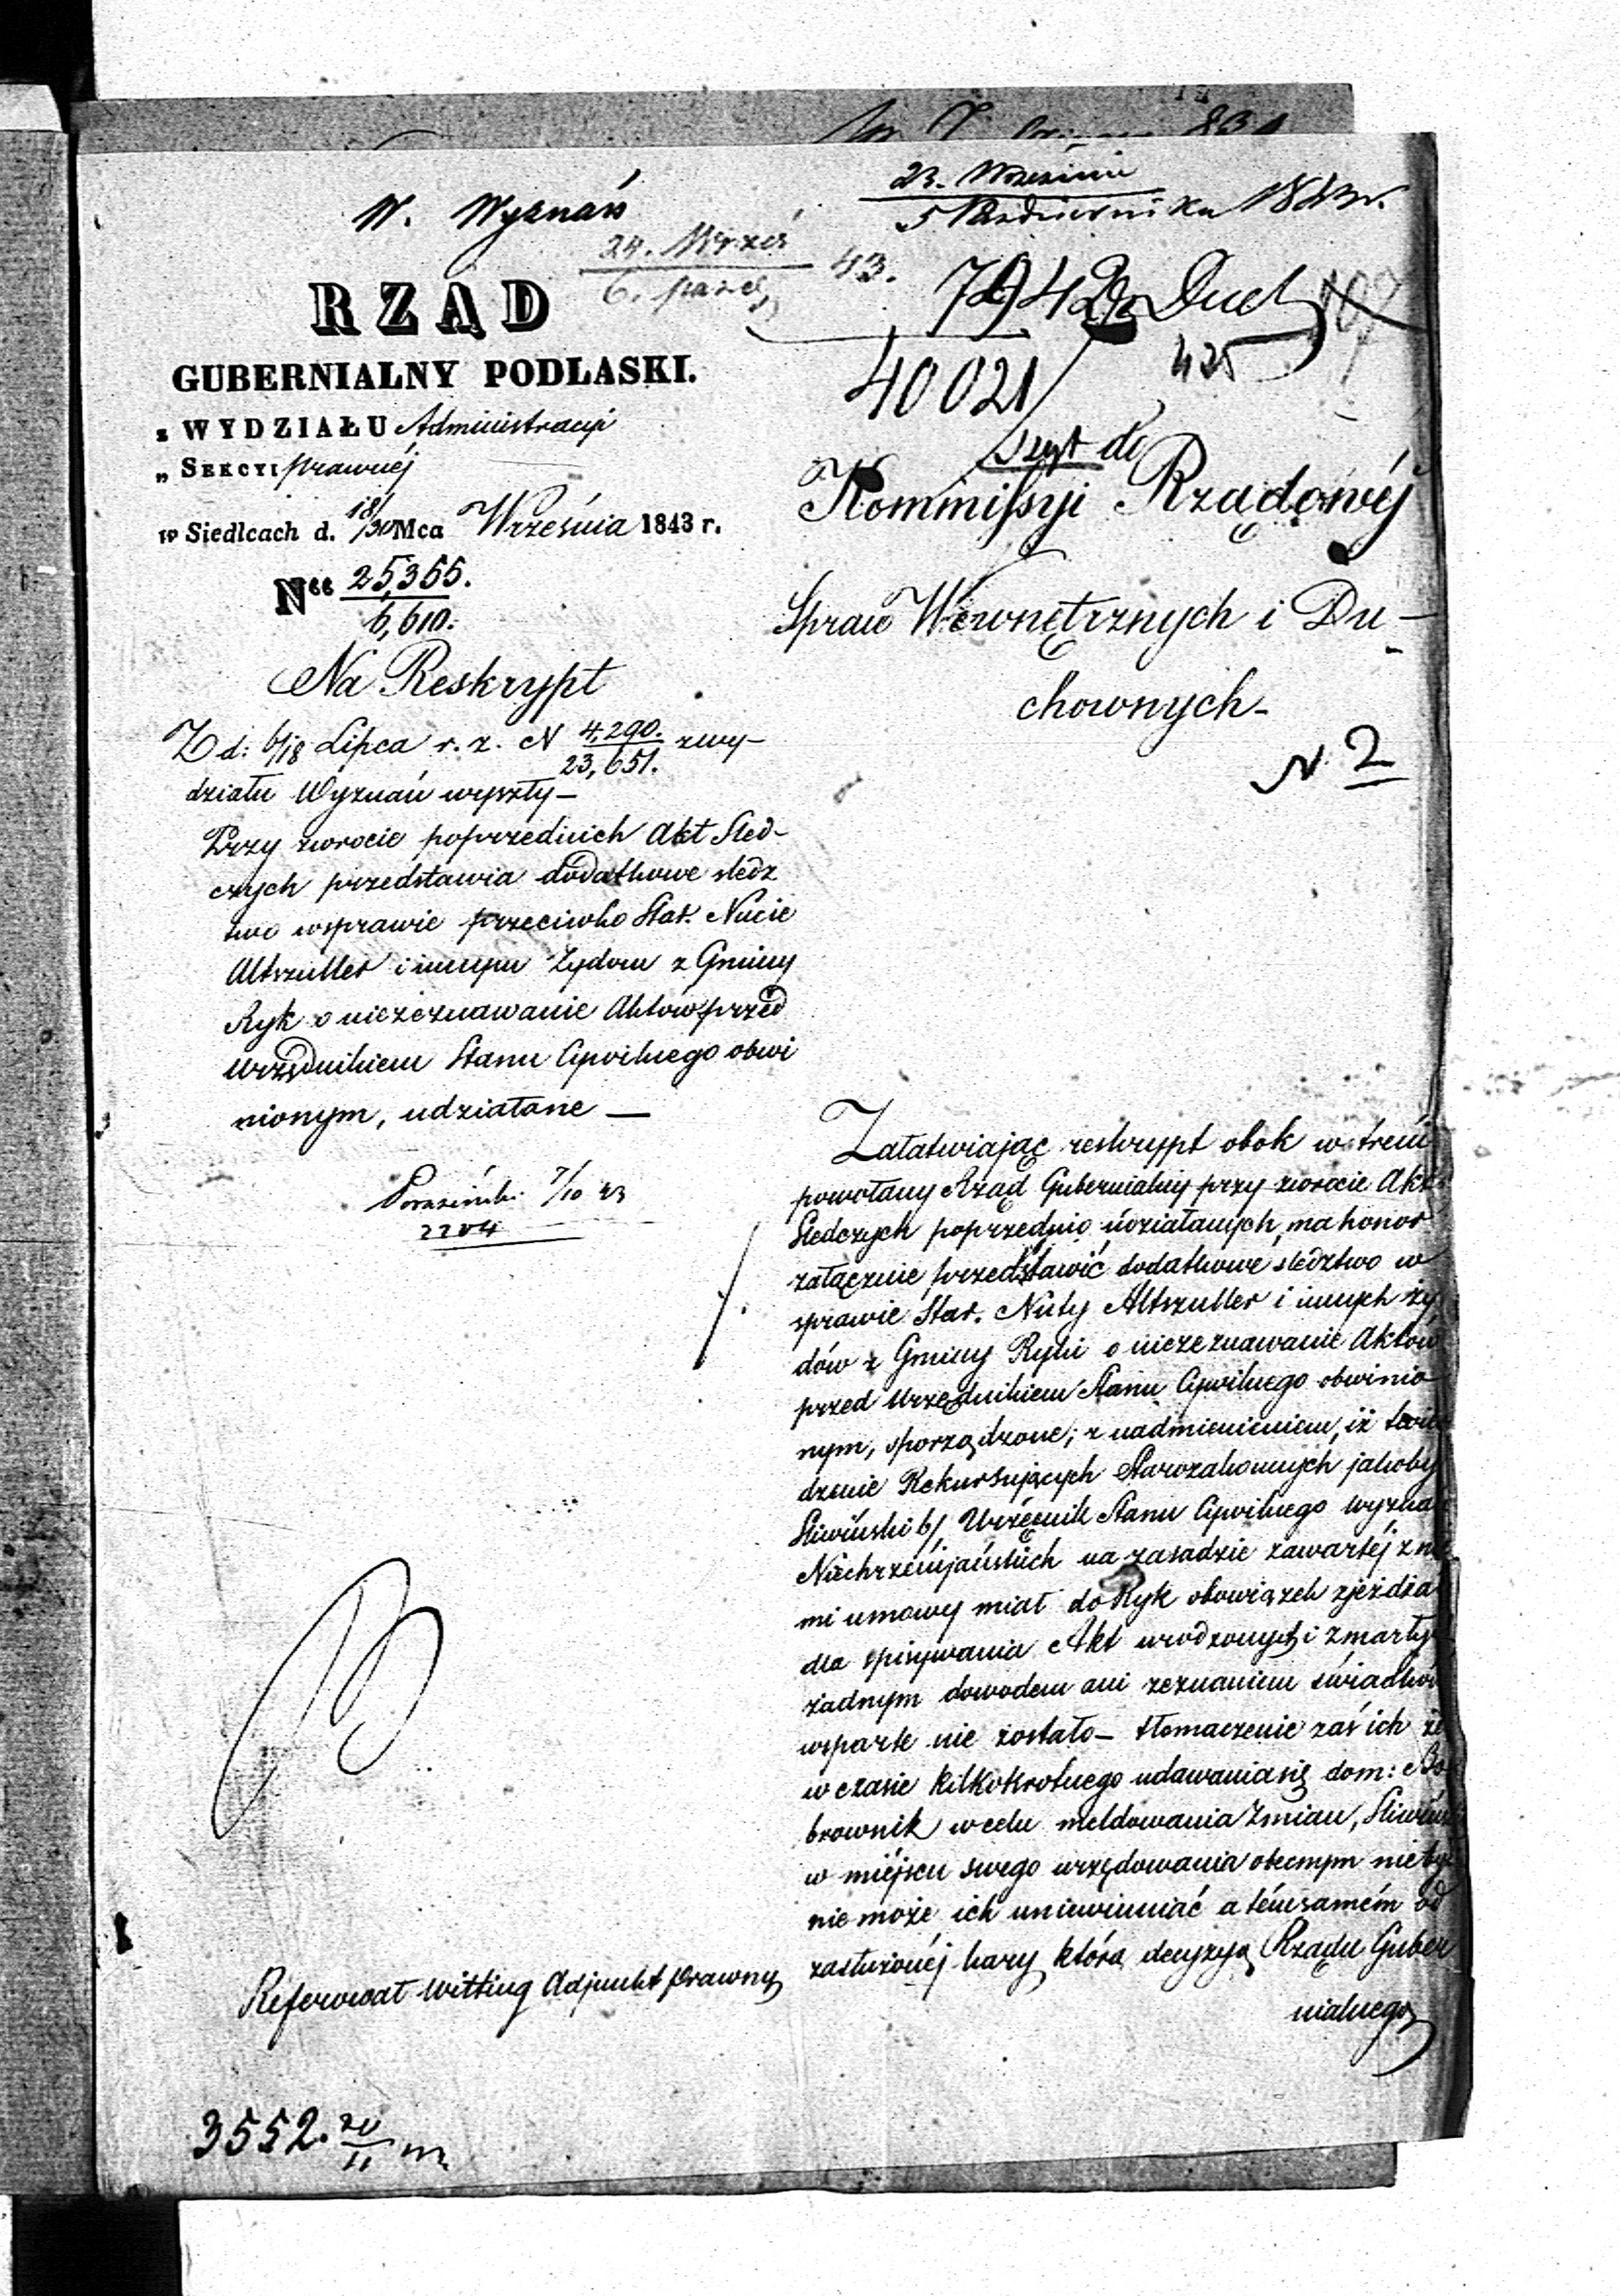 W. Wyznań
23. Września
5 Października 1843 r.
24. Wrześ
6. paźd
43.
7942 Duch
40021
435
RZĄD
GUBERNIALNY PODLASKI.
z WYDZIAŁU Administracyi
„ SEKCYI prawnéj
w Siedlcach d. 18/30 Mca Września 1843 r.
N 25,355.
6,610.
Kommissyi Rządowéj
Spraw Wewnętrznych i Du-
chownych-
N. 2
Na Reskrypt
Z d: 6/18 Lipca r. z. N 4,290. zwy-
23,651.
działu Wyznań wyszły-
Przy zwrocie poprzednich Akt Sled-
czych przedstawia dodatkowe sledz
two wsprawie przeciwko Star. Nucie
Altszuller i innym Żydom z Gminy
Ryk o niezeznawanie Aktów przed
Urzędnikiem Stanu Cywilnego obwi
nionym, udziałane —
7/10 43
2204
Załatwiając reskrypt obok w treści
powołany Rząd Gubernialny przy zwrocie Akt
Sledczych poprzednio udziałanych, ma honor
załącznie przedstawić dodatkowe sledztwo w
sprawie Star. Nuty Altszuller i innych ży
dów z Gminy Ryki o niezeznawanie Aktów
przed Urzędnikiem Stanu Cywilnego obwinio
nym, sporządzone; z nadmienieniem, iż twier
dzenie Rekursujących Starozakonnych jakoby
Sliwiński b/ Urzędnik Stanu Cywilnego wyznań
Niechrześcijańskich na zasadzie zawartéj z ni
mi umowy miał do Ryk obowiązek zjeżdżać
dla spisywania Akt urodzonych i zmarłych
żadnym dowodem ani zeznaniem świadków
wsparte nie zostało- tłomaczenie zaś ich że
w czasie kilkokrotnego udawania się do m: Bo
brownik w celu meldowania Zmian, Sliwiński
w miéjscu swego urzędowania obecnym nie był
nie może ich uniewinniać a témsamém od
zasłużonéj kary którą decyzyą Rządu Guber
nialnego
Referował Witting Adjunkt Prawny
3552. 20
11